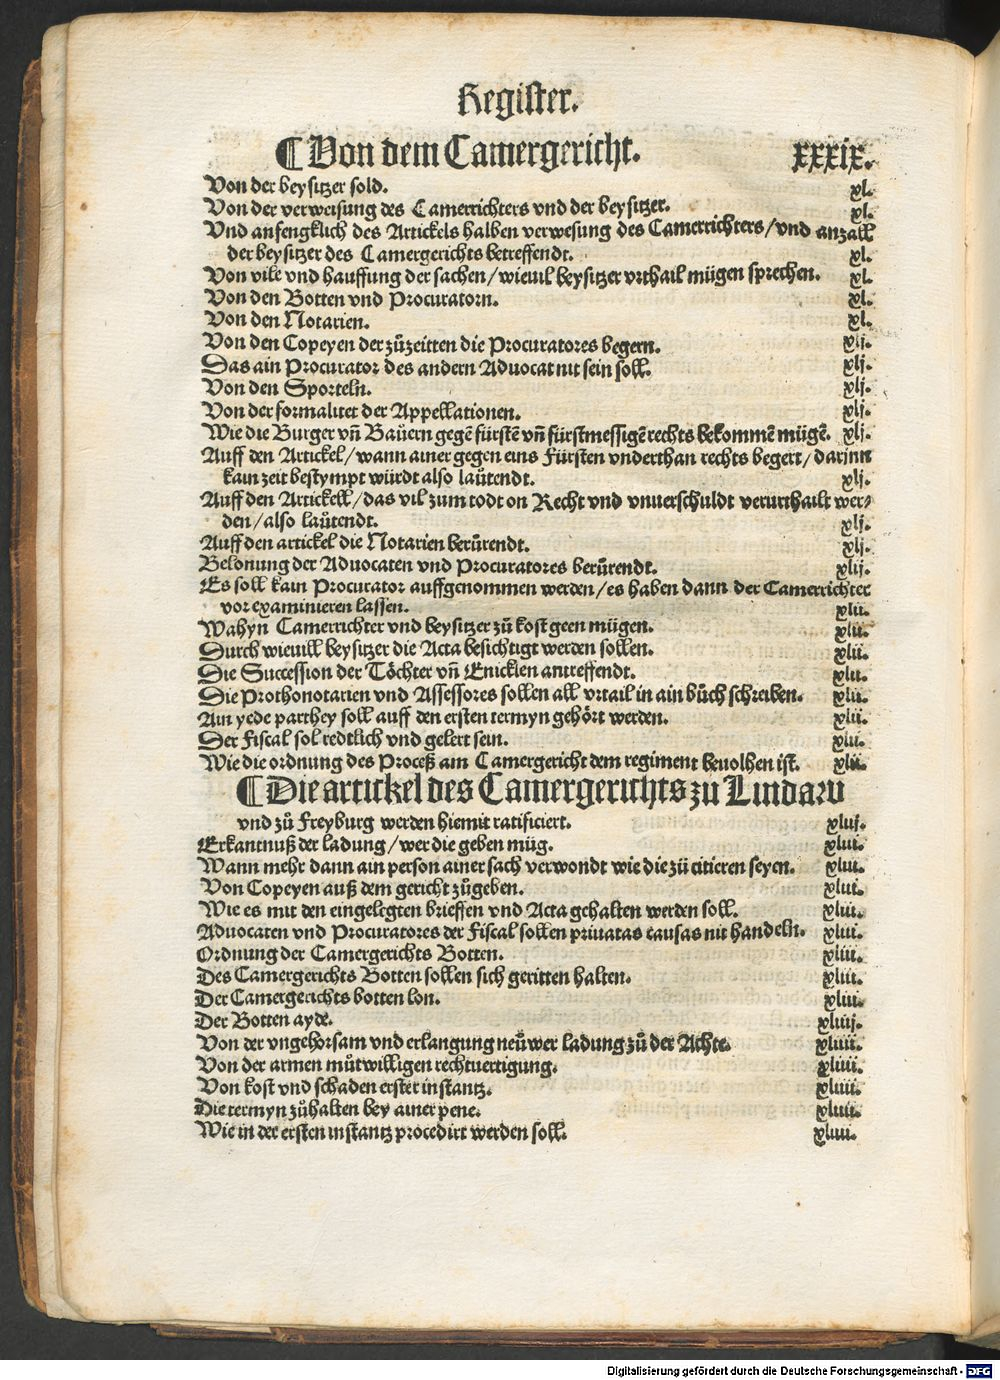 Register.
¶ Von dem Camergericht. xxxix.
Von der beysitzer sold. xl.
Von der verweisung des Camerrichters vnd der beysitzer. xl.
Vnd anfengklich des Artickels halben verwesung des Camerrichters/vnd anzall
der beysitzer des Camergerichts betreffendt. xl.
Von vile vnd hauffung der sachen/wieuil beysitzer vrthail mügen sprechen. xl.
Von den Botten vnd Procuratorn. xl.
Von den Notarien. xl.
Von den Copeyen der zůzeitten die Procuratores begern. xlj.
Das ain Procurator des andern Aduocat nit sein soll. xlj.
Von den Sporteln. xlj.
Von der formalitet der Appellationen. xlj.
Wie die Burger vñ Baůern gegē fürstē vñ fürstmessigē rechts bekommē mügē. xlj.
Auff den Artickel/wann ainer gegen eins Fürsten vnderthan rechts begert/darjnn
kain zeit bestympt würdt also laůtendt. xlj.
Auff den Artickell/das vil zum todt on Recht vnd vnuerschuldt verurthailt wer-
den/also laůtendt. xlj.
Auff den artickel die Notarien berürendt. xlj.
Belonung der Aduocaten vnd Procuratores berürendt. xlij.
Es soll kain Procurator auffgenommen werden/es haben dann der Camerrichter
vor examinieren lassen. xlii.
Wahyn Camerrichter vnd beysitzer zů kost geen mügen. xlii.
Durch wieuill beysitzer die Acta besichtigt werden sollen. xlii.
Die Succession der Töchter vñ Enicklen antreffendt. xlii.
Die Prothonotarien vnd Assessores sollen all vrtail in ain bůch schreiben. xlii.
Ain yede parthey soll auff den ersten termyn gehört werden. xlii.
Der Fiscal sol redtlich vnd gelert sein. xlii.
Wie die ordnung des Proceß am Camergericht dem regiment beuolhen ist. xlii.
¶ Die artickel des Camergerichts zu Lindaw
vnd zů Freyburg werden hiemit ratificiert. xliij.
Erkantnuß der ladung/wer die geben müg. xliii.
Wann mehr dann ain person ainer sach verwondt wie die zů citieren seyen. xliii.
Von Copeyen auß dem gericht zůgeben. xliii.
Wie es mit den eingelegten brieffen vnd Acta gehalten werden soll. xliii.
Aduocaten vnd Procuratores der Fiscal sollen priuatas causas nit handeln. xliii.
Ordnung der Camergerichts Botten. xliii.
Des Camergerichts Botten sollen sich geritten halten. xliii.
Der Camergerichts botten lon. xliii.
Der Botten ayde. xliiij.
Von der vngehorsam vnd erlangung neůwer ladung zů der Achte. xliiii.
Von der armen můtwilligen rechtuertigung. xliiii.
Von kost vnd schaden erster instantz. xliiii.
Die termyn zůhalten bey ainer pene. xliiii.
Wie in der ersten instantz procedirt werden soll. xliiii.
Digitalisierung gefördert durch die Deutsche Forschungsgemeinschaft - DFG